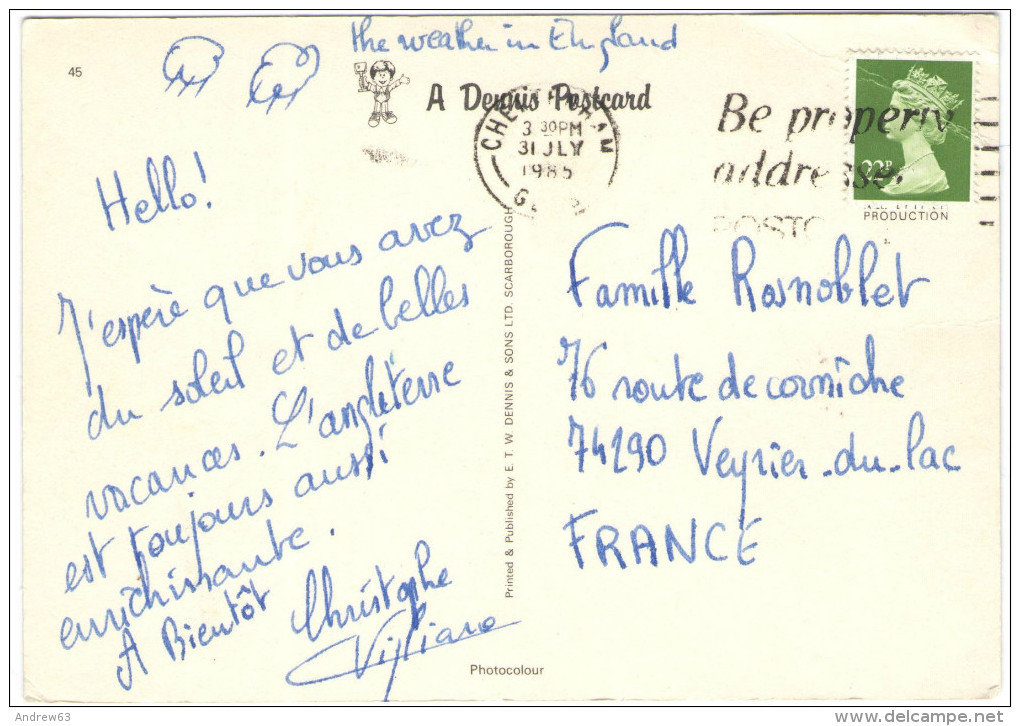 the weather in England
45
A Dennis Postcard
3 30PM
31 JLY
1985
Be properly
addressed
22P
PRODUCTION
Hello!
J'espère que vous avez
du soleil et de belles
vacances. L'angleterre
est toujours aussi
enrichissante.
A Bientôt Christophe
Vigliano
Printed & Published by E. T. W. DENNIS & SONS LTD. SCARBOROUGH
Famille Rosnoblet
76 route de corniche
74290 Veyrier-du-lac
FRANCE
Photocolour
Andrew63